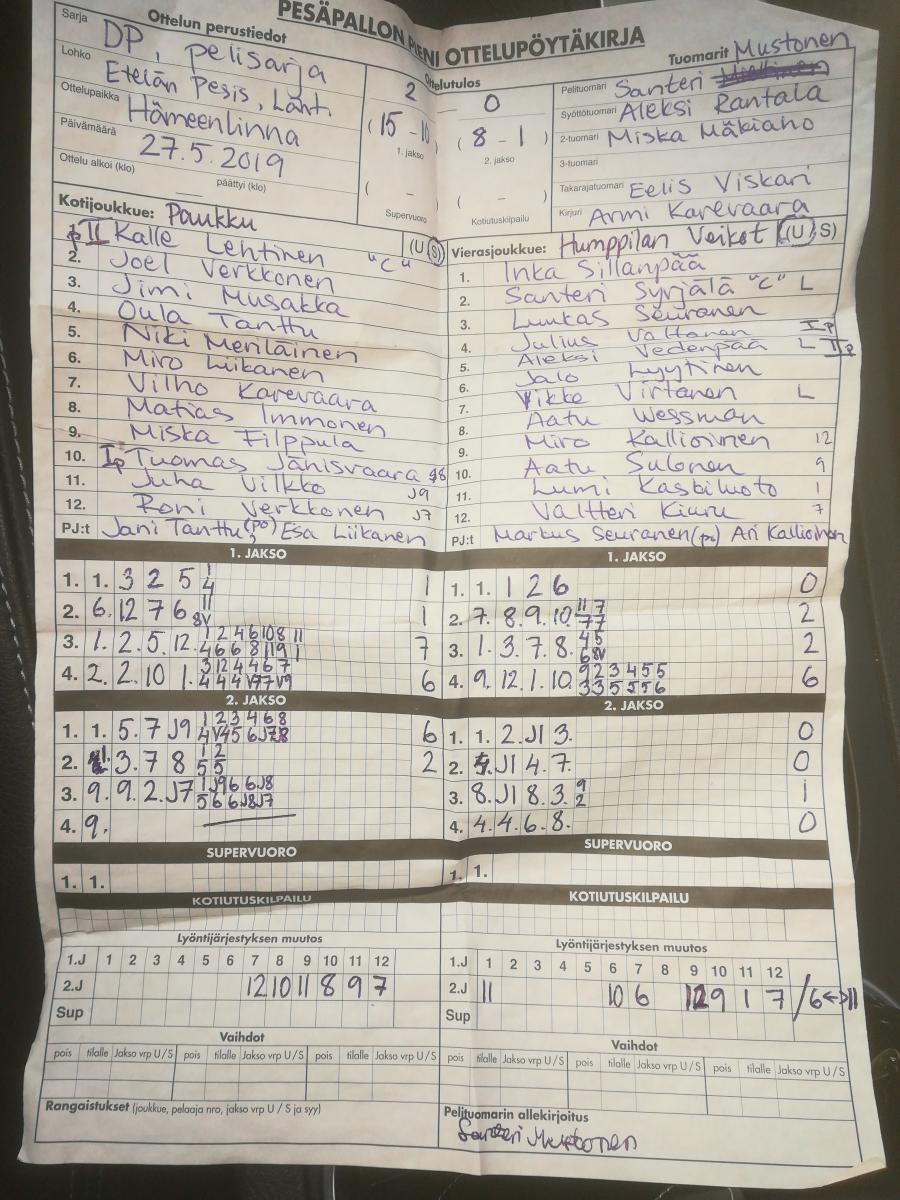 PESÄPALLON PIENI OTTELUPÖYTÄKIRJA
Ottelun perustiedot
Sarja DP, pelisarja
Lohko Etelän Pesis, Länt.
Ottelupaikka Hämeenlinna
Päivämäärä 27.5.2019
Ottelu alkoi (klo) päättyi (klo)
Ottelutulos
2 0
(15 - 10) (8 - 1)
1. jakso 2. jakso
( - ) ( - )
Supervuoro Kotiutuskilpailu
Tuomarit Mustonen
Pelituomari Santeri
Syöttötuomari Aleksi Rantala
2-tuomari Miska Mäkiaho
3-tuomari
Takarajatuomari Eelis Viskari
Kirjuri Armi Karevaara
Kotijoukkue: Paukku (U S)
Kalle Lehtinen "C"
2. Joel Verkkonen
3. Jimi Musakka
4. Oula Tanttu
5. Niki Meriläinen
6. Miro Liikanen
7. Vilho Karevaara
8. Matias Immonen
9. Miska Filppula
10. Ip Tuomas Jänisvaara J8
11. Juha Vilkko J9
12. Roni Verkkonen J7
PJ:t Jani Tanttu (po) Esa Liikanen
Vierasjoukkue: Humppilan Veikot (U S)
1. Inka Sillanpää
2. Santeri Syrjälä "C" L
3. Luukas Seuranen
4. Julius Valtanen Ip
5. Aleksi Vedenpää L IIp
6. Jalo Lyytinen
7. Vikke Virtanen L
8. Aatu Wessman
9. Miro Kallioinen 12
10. Aatu Sulonen 9
11. Lumi 1
12. Valtteri Kiuru 7
PJ:t Markus Seuranen (po) Ari Kallioinen
1. JAKSO
1. 1. 3 2 5 1 1
4
2. 6. 12 7 6 11 1
8V
3. 1. 2. 5. 12. 1 2 4 6 10 8 11 7
4 6 6 8 11 9 1
4. 2. 2. 10 1. 3 12 4 4 6 7 6
4 4 4 V7 7 V9
1. JAKSO
1. 1. 1 2 6 0
2. 7. 8. 9. 10. 11 7 2
7 7
3. 1. 3. 7. 8. 4 5 2
6 8V
4. 9. 12. 1. 10. 9 2 3 4 5 5 6
3 3 5 5 5 6
2. JAKSO
1. 1. 5. 7 J9 1 2 3 4 6 8 6
4 V4 5 6 J7 8
2. 3. 7 8 1 2 2
5 5
3. 9. 9. 2. J7 1 J9 6 6 J8
5 6 6 J8 J7
4. 9.
2. JAKSO
1. 1. 2. J1 3. 0
2. J1 4. 7. 0
3. 8. J1 8. 3. 9 1
2
4. 4. 4. 6. 8. 0
SUPERVUORO
1. 1.
SUPERVUORO
1. 1.
KOTIUTUSKILPAILU
KOTIUTUSKILPAILU
Lyöntijärjestyksen muutos
1.J 1 2 3 4 5 6 7 8 9 10 11 12
2.J 12 10 11 8 9 7
Sup
Lyöntijärjestyksen muutos
1.J 1 2 3 4 5 6 7 8 9 10 11 12
2.J 11 10 6 12 9 1 7 / 6↔11
Sup
Vaihdot
pois tilalle Jakso vrp U/S pois tilalle Jakso vrp U/S pois tilalle Jakso vrp U/S
Vaihdot
pois tilalle Jakso vrp U/S pois tilalle Jakso vrp U/S pois tilalle Jakso vrp U/S
Rangaistukset (joukkue, pelaaja nro, jakso vrp U / S ja syy)
Pelituomarin allekirjoitus
Santeri Mustonen